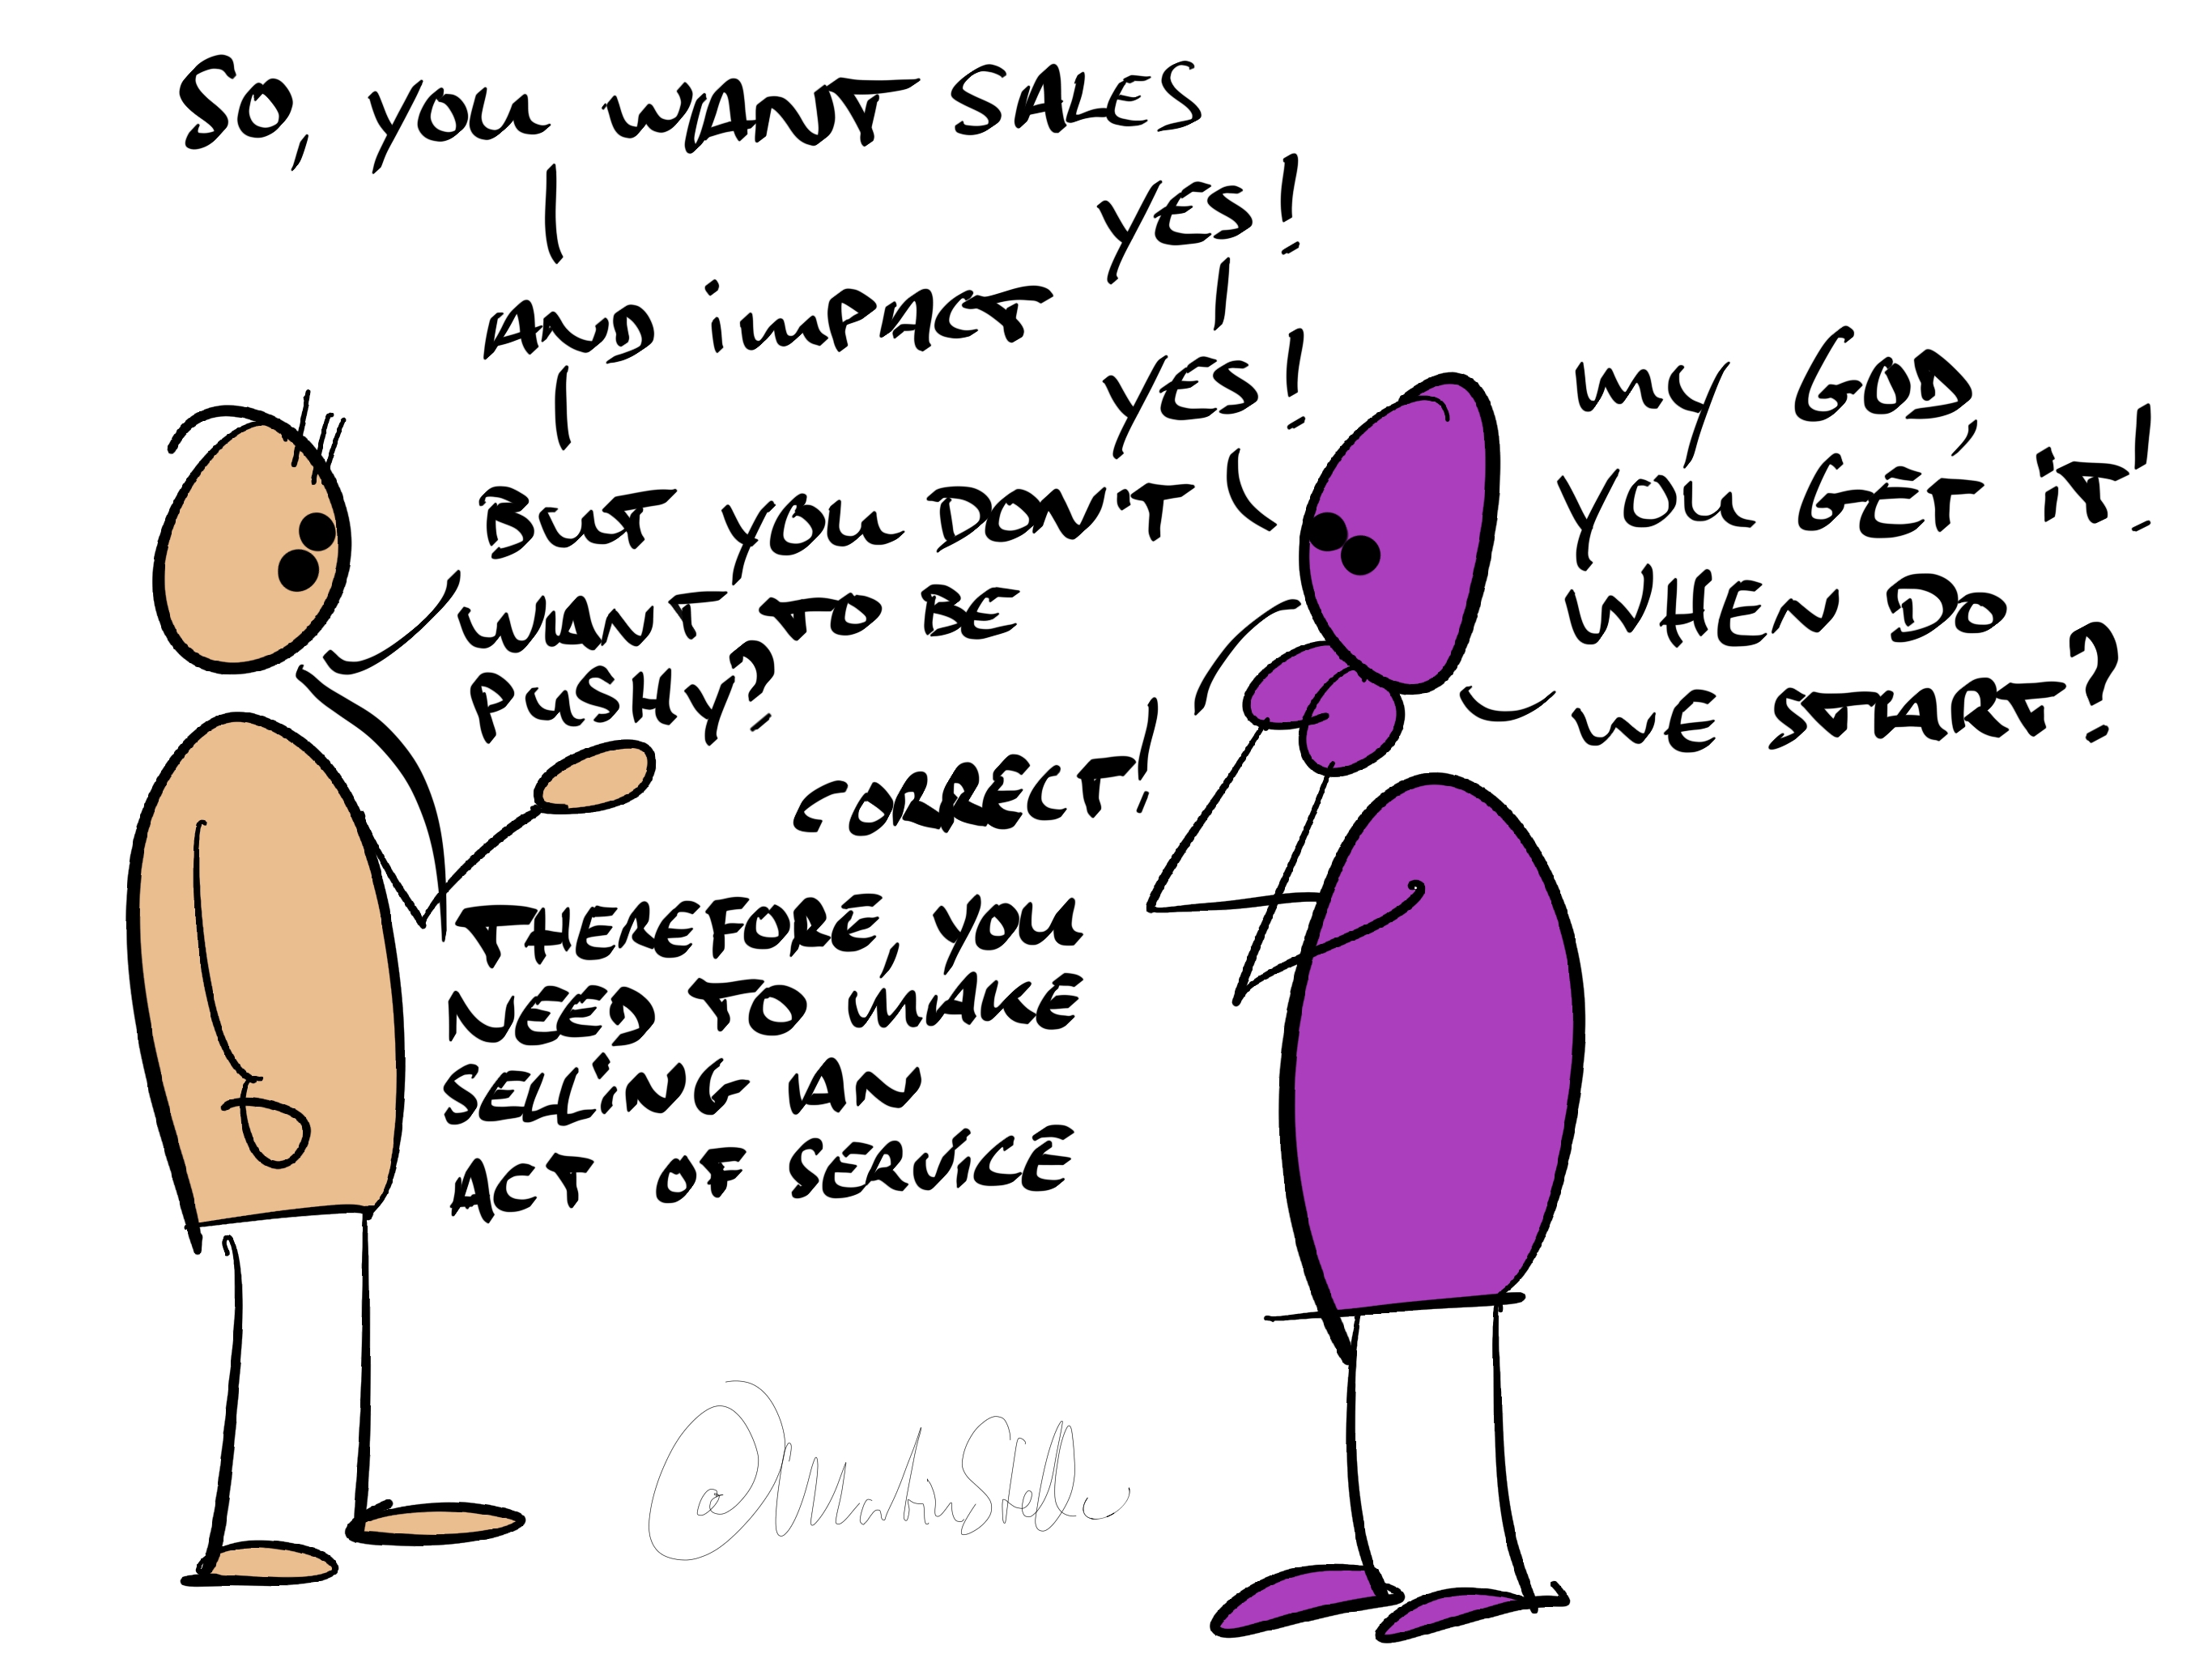 So, you WANT SALES
YES!
AND imPACT
YES!
BUT YOU DON'T
WANT TO BE
PUSHY?
CORRECT!
THEREFORE, YOU
NEED TO MAKE
SELLiNG AN
ACT OF SERVICE
my GOD,
YOU GET iT!
WHEN DO
WE START?
@MartinStellar